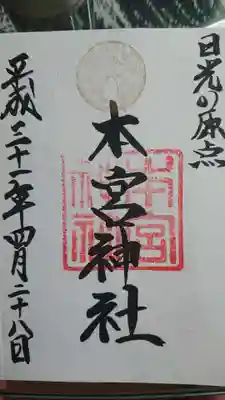 日光の原点
本宮神社
平成三十一年四月二十八日